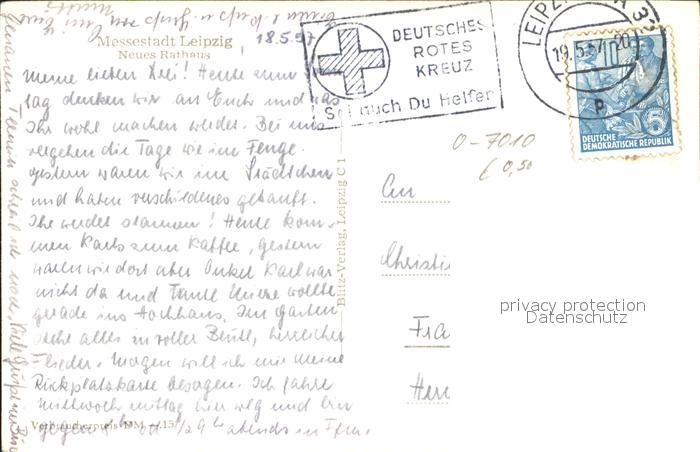 Messestadt Leipzig
Neues Rathaus
18.5.57
Meine lieben Drei! Heute zum Sonn-
tag denken wir an Euch und was
Ihr wohl machen werdet. Bei uns
vergehen die Tage wie im Fluge.
gestern waren wir im Städtchen
und haben verschiedenes gekauft.
Ihr werdet staunen! Heute kom-
men Karls zum Kaffee, gestern
waren wir dort aber Onkel Karl war
nicht da und Tante wollte
gerade ins Hochhaus. Im Garten
steht alles in voller Blüte, herrlicher
Flieder. Morgen will ich mir meine
Rückplatzkarte besorgen. Ich fahre
Mittwoch mittag hier weg und bin
gegen 1/2 9 abends in
Verbraucherpreis DM -,15
genauen Termin schreibe ich noch.
Blitz-Verlag, Leipzig C 1
DEUTSCHES
ROTES
KREUZ
Sei auch Du Helfer
LEIPZIG
19.5.57
20
P
10
5
DEUTSCHE
DEMOKRATISCHE REPUBLIK
0-7010
€ 0,50
An
Christi
Fra
Herr
privacy protection
Datenschutz